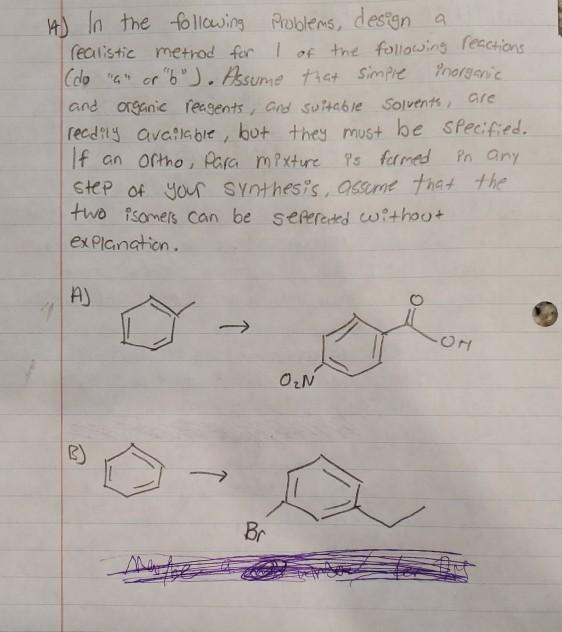 14) In the following Problems, design a
realistic method for 1 of the following reactions
(do "a" or "b"). Assume that simple inorganic
and organic reagents, and suitable solvents, are
readily available, but they must be specified.
If an ortho, Para mixture is formed in any
step of your synthesis, assume that the
two isomers can be seperated without
explanation.
A)
O
OH
O₂N
B)
Br